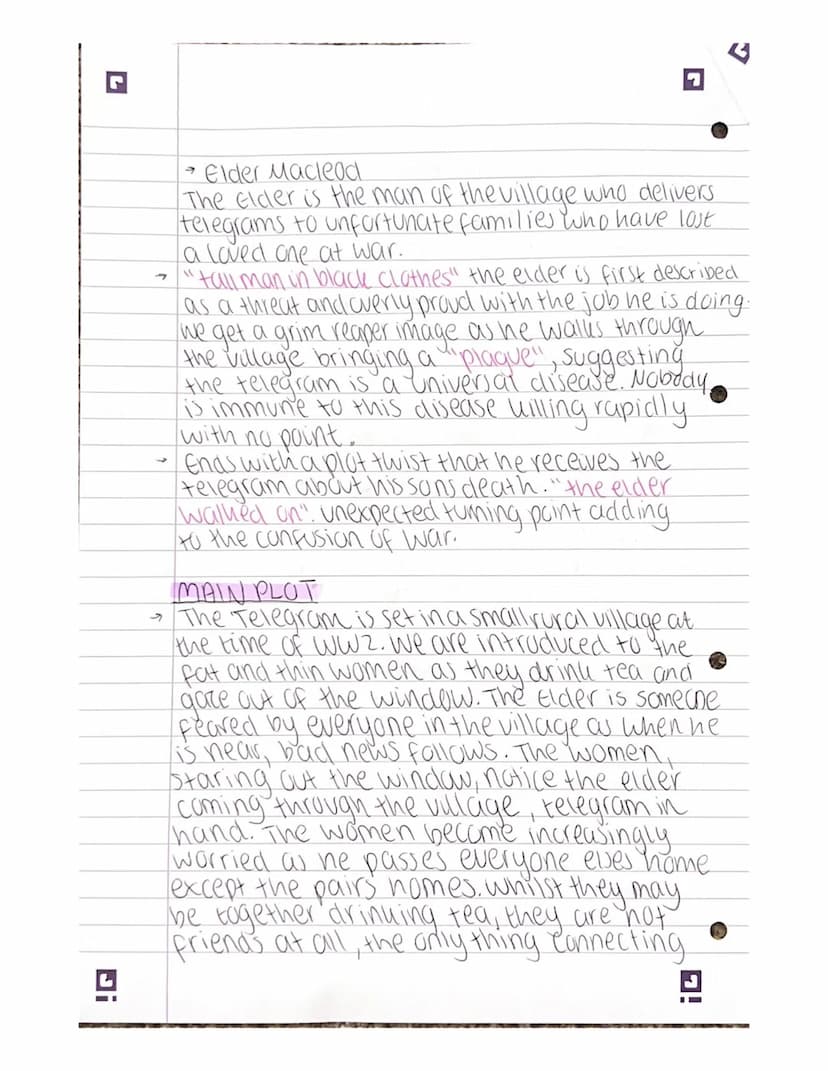 → Elder Macleod
The Elder is the man of the village who delivers
telegrams to unfortunate families who have lost
a loved one at war.
→ "tall man in black clothes" the elder is first described
as a threat and overly proud with the job he is doing.
We get a grim reaper image as he walks through
the village bringing a "plague", suggesting
the telegram is a universal disease. Nobody
is immune to this disease killing rapidly
with no point.
→ Ends with a plot twist that he receives the
telegram about his sons death. "the elder
walked on". unexpected turning point adding
to the confusion of war.
MAIN PLOT
→ The Telegram is set in a small rural village at
the time of WW2. We are introduced to the
fat and thin women as they drink tea and
gaze out of the window. The Elder is someone
feared by everyone in the village as when he
is near, bad news follows. The women,
staring out the window, notice the elder
coming through the village, telegram in
hand. The women become increasingly
worried as he passes everyone elses home
except the pairs homes. Whilst they may
be together drinking tea, they are not
friends at all, the only thing connecting